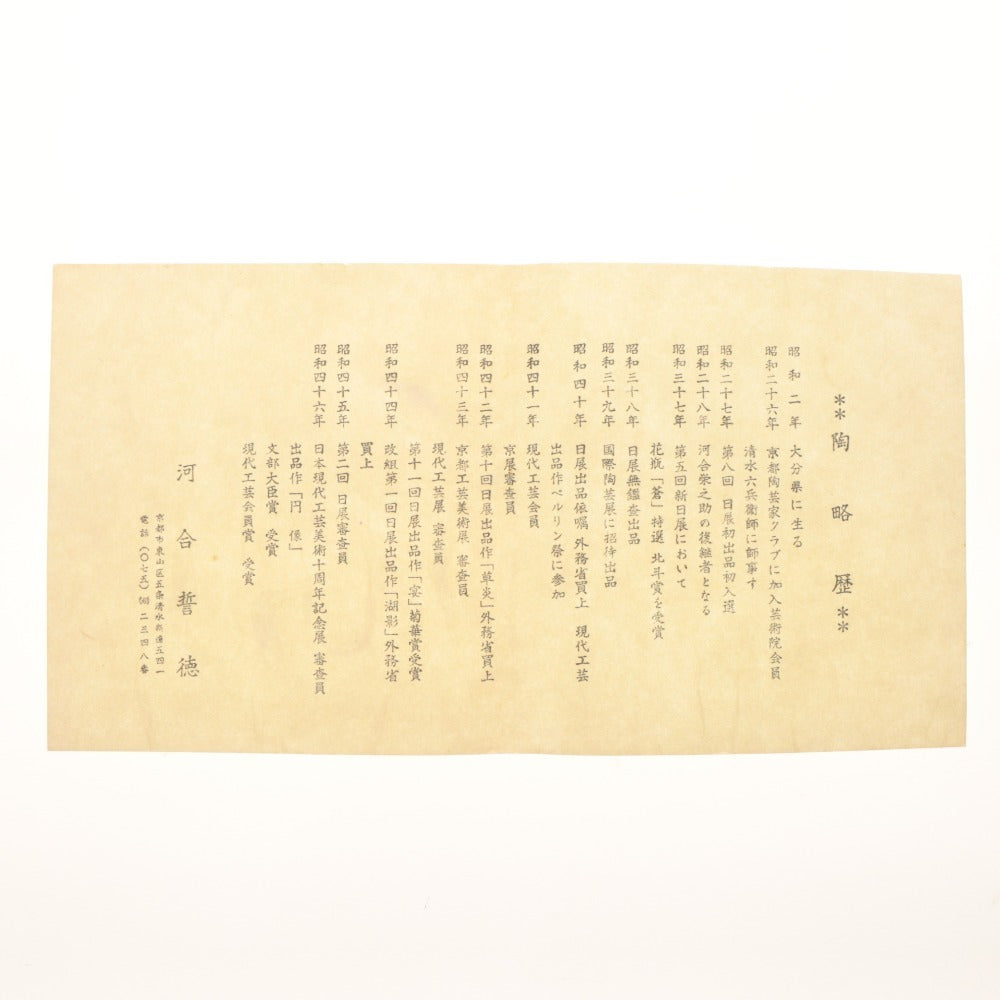 **陶略歴**
昭和二年 大分県に生る
昭和二十六年 京都陶芸家クラブに加入芸術院会員
清水六兵衛師に師事す
昭和二十七年 第八回 日展初出品初入選
昭和二十八年 河合栄之助の後継者となる
昭和三十七年 第五回新日展において
花瓶「蒼」特選 北斗賞を受賞
昭和三十八年 日展無鑑査出品
昭和三十九年 国際陶芸展に招待出品
昭和四十年 日展出品依嘱 外務省買上 現代工芸
出品作ベルリン祭に参加
昭和四十一年 現代工芸会員
京展審査員
昭和四十二年 第十回日展出品作「草炎」外務省買上
昭和四十三年 京都工芸美術展 審査員
現代工芸展 審査員
第十一回日展出品作「宴」菊華賞受賞
昭和四十四年 改組第一回日展出品作「湖影」外務省
買上
昭和四十五年 第二回 日展審査員
昭和四十六年 日本現代工芸美術十周年記念展 審査員
出品作「円像」
文部大臣賞 受賞
現代工芸会員賞 受賞
河合誓徳
京都市東山区五条清水焼通五四一
電話(〇七五) 二三四八番